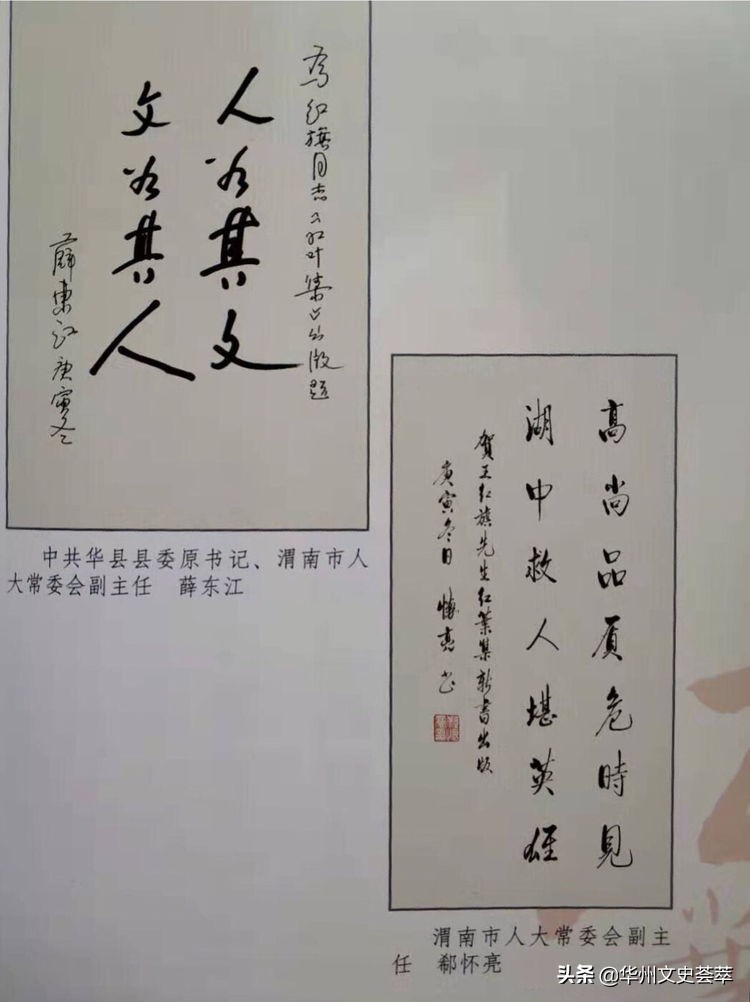 为红旗同志《红叶集》出版题
人如其文
文如其人
薛东江庚寅冬
中共华县县委原书记、渭南市人
大常委会副主任 薛东江
高尚品质危時見
湖中救人堪英雄
贺王红旗先生红葉集新書出版
庚寅冬日 怀亮书
渭南市人大常委会副主
任 郗怀亮
头条 @华州文史荟萃